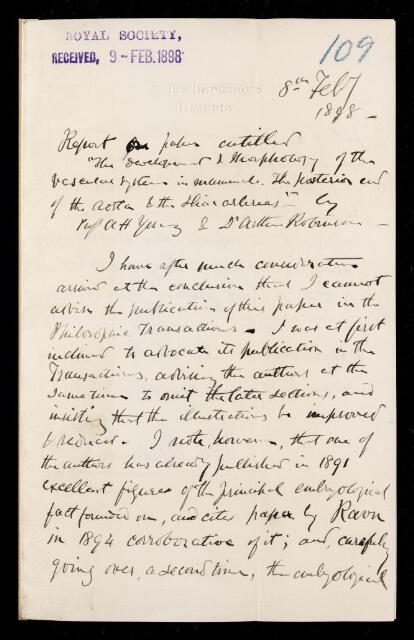 ROYAL SOCIETY,
RECEIVED, 9-FEB.1898
109
8th Feby
1898 –
Report on paper entitled
"The development & Morphology of the
vascular system in mammals. The posterior end
of the aorta & the Iliac arteries" – by
Prof AH Young & Dr Arthur Robinson –
I have after much consideration
arrived at the conclusion that I cannot
advise the publication of this paper in the
Philosophic Transactions. I was at first
inclined to advocate its publication in the
Transactions, advising the authors at the
same time to omit the later sections, and
insisting that the illustrations be improved
& reduced. I note, however, that one of
the authors has already published in 1891
excellent figures of the principal embryological
fact founded on, and cites paper by Ravn
in 1894 corroborative of it; and, carefully
going over, a second time, the embryological